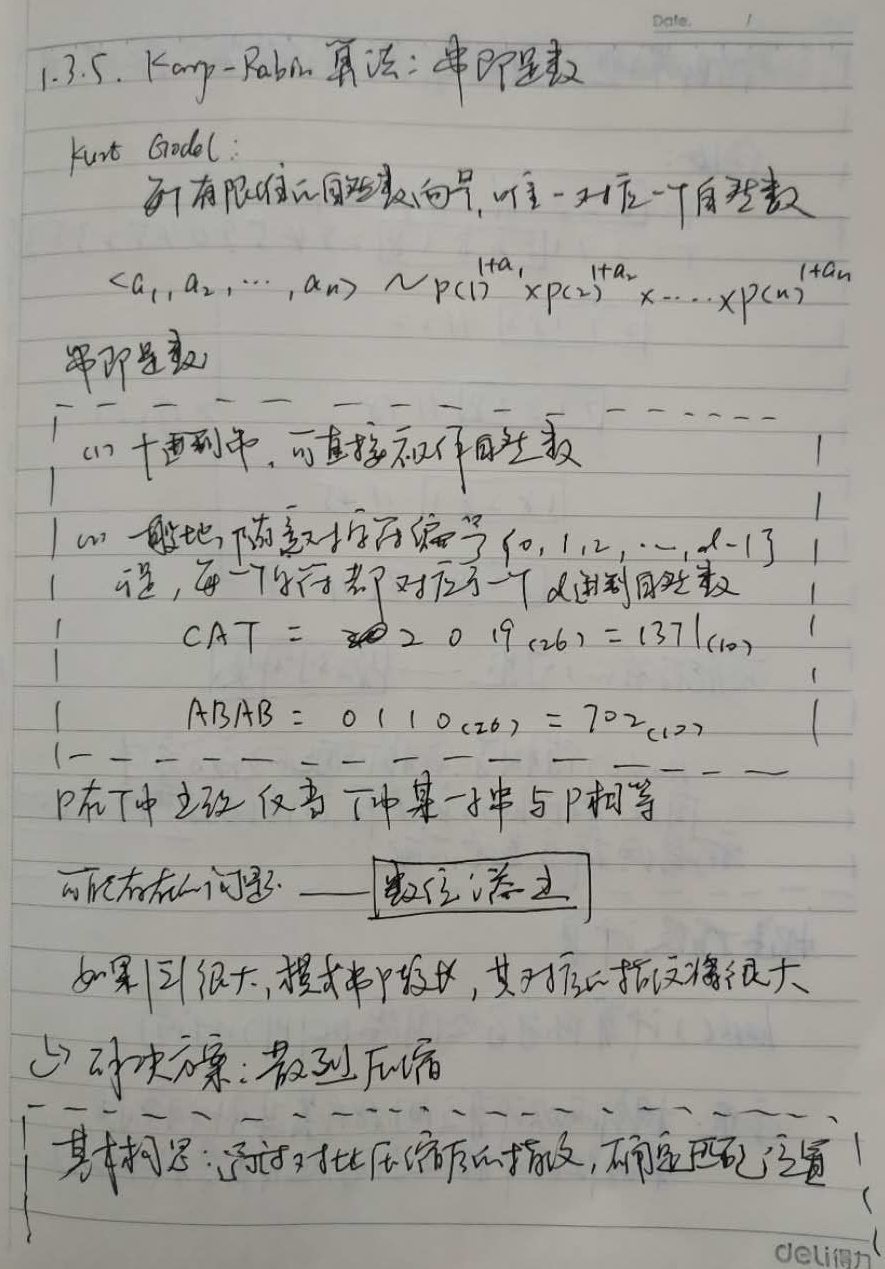 Date. /
1.3.5. Karp-Rabin 算法：串即是数
Kurt Godel：
每个有限维的自然数向量，唯一对应一个自然数
<a₁, a₂, ⋯, aₙ> ~ p(1)^{1+a₁} × p(2)^{1+a₂} × ⋯⋯ × p(n)^{1+aₙ}
串即是数
(1) 十进制串，可直接视作自然数
(2) 一般地，随意对字符编号 {0, 1, 2, ⋯, d-1}
于是，每一个字符都对应于一个 d进制自然数
CAT = 2 0 19 (26) = 1371(10)
ABAB = 0 1 1 0 (26) = 702(10)
P在T中出现 仅当 T中某一子串与P相等
可能存在的问题 —— 数位溢出
如果|Σ|很大，模式串P较长，其对应的指纹将很大
↳ 解决方案：散列压缩
基本构思：通过对比压缩后的指纹，确定匹配位置
deli得力